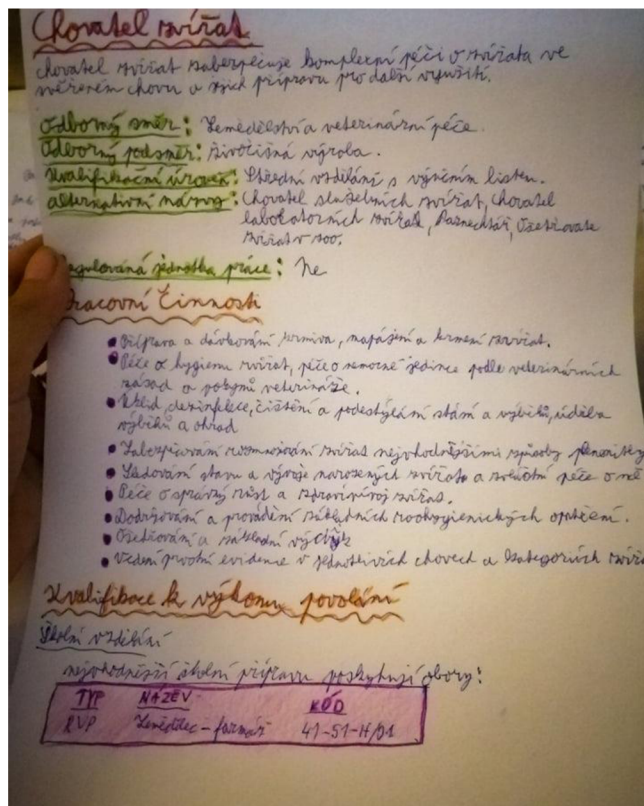 Chovatel zvířat
Chovatel zvířat zabezpečuje komplexní péči o zvířata ve
svěřeném chovu a jejich přípravu pro další využití.
Odborný směr: Zemědělství a veterinární péče.
Odborný podsměr: živočišná výroba.
Kvalifikační úroveň: Střední vzdělání s výučním listem.
alternativní názvy: Chovatel služebních zvířat, Chovatel
laboratorních zvířat, Ošetřovate
zvířat v zoo.
Regulovaná jednotka práce: Ne
Pracovní činnosti
Příprava a dávkování krmiva, napájení a krmení zvířat.
Péče o hygienu zvířat, péče o nemocné jedince podle veterinárních
zásad a pokynů veterináře.
Úklid, dezinfekce, čištění a podestýlání stání a výběhů, údržba
výběhů a ohrad
Zabezpečování rozmnožování zvířat nejvhodnějšími způsoby
Sledování stavu a vývoje narozených zvířat a zvláštní péče o ně
Péče o správný růst a zdravý vývoj zvířat.
Dodržování a provádění základních zoohygienických opatření.
Ošetřování a základní výcvik
Vedení prvotní evidence v jednotlivých chovech a kategoriích
Kvalifikace k výkonu povolání
Školní vzdělání
nejvhodnější školní přípravu poskytují obory:
TYP NÁZEV KÓD
RVP Zemědělec-farmář 41-51-H/01